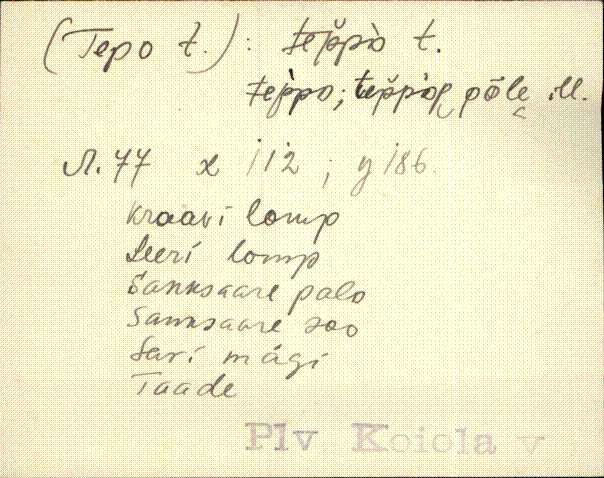 (Tepo t.): teppò t.
teppo; teppòlᴇ põlᴇ ill.
Л. 77 x 112 ; y 186.
Kraavi lomp
Leeri lomp
Sanksaare palo
Sanksaare soo
Savi mägi
Taade
Plv Koiola v